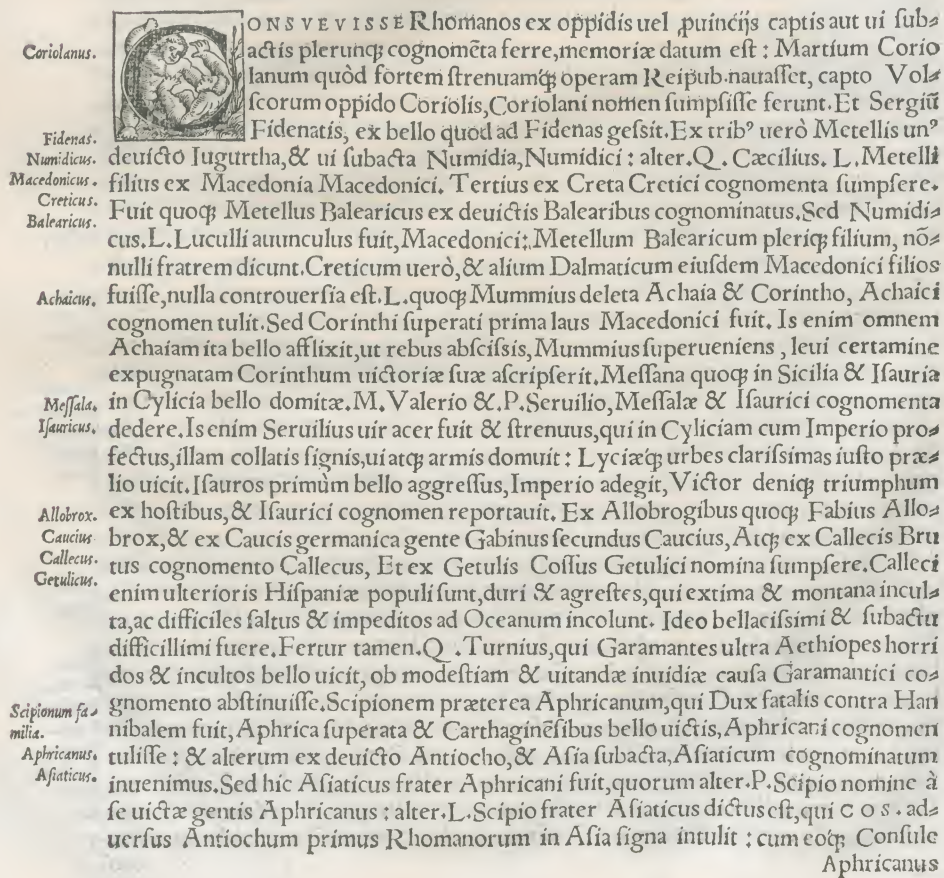 CONSVEVISSE Rhomanos ex oppidis uel ꝓuincijs captis aut ui ſub⸗
Coriolanus. actis plerunqꝫ cognomēta ferre,memoriæ datum eſt : Martium Corio
lanum quòd fortem ſtrenuamqꝫ operam Reipub.nauaſſet, capto Vol⸗
ſcorum oppido Coriolis,Coriolani nomen ſumpſiſſe ferunt.Et Sergiū
Fidenas. Fidenatis, ex bello quod ad Fidenas geſsit.Ex tribꝰ uerò Metellis unꝰ
Numidicus. deuicto Iugurtha,& ui ſubacta Numidia,Numidici : alter.Q. Cæcilius. L. Metelli
Macedonicus. filius ex Macedonia Macedonici. Tertius ex Creta Cretici cognomenta ſumpſere.
Creticus.
Balearicus. Fuit quoqꝫ Metellus Balearicus ex deuictis Balearibus cognominatus.Sed Numidi⸗
cus.L.Luculli auunculus fuit,Macedonici:.Metellum Balearicum pleriqꝫ filium, nō⸗
nulli fratrem dicunt.Creticum uerò,& alium Dalmaticum eiuſdem Macedonici filios
Achaicus. fuiſſe,nulla controuerſia eſt.L.quoqꝫ Mummius deleta Achaia & Corintho, Achaici
cognomen tulit.Sed Corinthi ſuperati prima laus Macedonici fuit. Is enim omnem
Achaiam ita bello afflixit,ut rebus abſciſsis,Mummius ſuperueniens , leui certamine
expugnatam Corinthum uictoriæ ſuæ aſcripſerit.Meſſana quoqꝫ in Sicilia & Iſauria
Meſſala. in Cylicia bello domitæ.M. Valerio &.P.Seruilio,Meſſalæ & Iſaurici cognomenta
Iſauricus. dedere.Is enim Seruilius uir acer fuit & ſtrenuus,qui in Cyliciam cum Imperio pro⸗
fectus,illam collatis ſignis,ui atqꝫ armis domuit : Lyciæqꝫ urbes clariſsimas iuſto præ⸗
lio uicit.Iſauros primùm bello aggreſſus,Imperio adegit,Victor deniqꝫ triumphum
Allobrox. ex hoſtibus,& Iſaurici cognomen reportauit. Ex Allobrogibus quoqꝫ Fabius Allo⸗
Caucius brox,& ex Caucis germanica gente Gabinus ſecundus Caucius,Atqꝫ ex Callecis Bru
Callecus. tus cognomento Callecus, Et ex Getulis Coſſus Getulici nomina ſumpſere.Calleci
Getulicus. enim ulterioris Hiſpaniæ populi ſunt,duri & agreſtes,qui extima & montana incul⸗
ta,ac difficiles ſaltus & impeditos ad Oceanum incolunt. Ideo bellaciſsimi & ſubactu
difficillimi fuere.Fertur tamen.Q .Turnius,qui Garamantes ultra Aethiopes horri
dos & incultos bello uicit,ob modeſtiam & uitandæ inuidiæ cauſa Garamantici co⸗
Scipionum fa⸗ gnomento abſtinuiſſe.Scipionem præterea Aphricanum,qui Dux fatalis contra Han
milia. nibalem fuit,Aphrica ſuperata & Carthaginēſibus bello uictis,Aphricani cognomen
Aphricanus. tuliſſe : & alterum ex deuicto Antiocho,& Aſia ſubacta,Aſiaticum cognominatum
Aſiaticus. inuenimus.Sed hic Aſiaticus frater Aphricani fuit,quorum alter.P.Scipio nomine à
ſe uictæ gentis Aphricanus : alter.L.Scipio frater Aſiaticus dictus eſt,qui COS. ad⸗
uerſus Antiochum primus Rhomanorum in Aſia ſigna intulit : cum eoqꝫ Conſule
Aphricanus